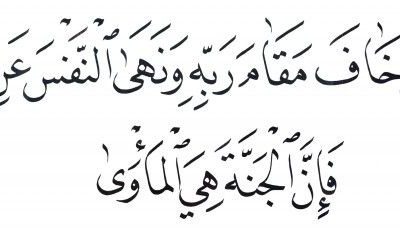 خَافَ مَقَامَ رَبِّهِۦ وَنَهَى ٱلنَّفْسَ عَنِ
فَإِنَّ ٱلْجَنَّةَ هِيَ ٱلْمَأْوَىٰ